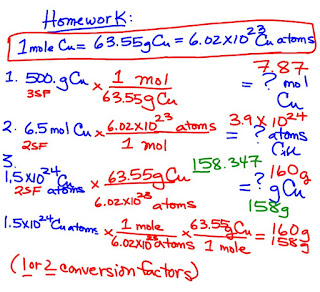 Homework:
1 mole Cu = 63.55g Cu = 6.02X10²³ Cu atoms
1. 500. g Cu x 1 mol / 63.55g Cu = ? mol Cu 7.87
3SF
2. 6.5 mol Cu x 6.02x10²³ atoms / 1 mol = ? atoms Cu 3.9 X 10²⁴
2SF
3. 158.347
1.5X10²⁴ Cu atoms x 63.55g Cu / 6.02x10²³ atoms = ? g Cu 160g
2SF 158g
1.5x10²⁴ Cu atoms x 1 mole / 6.02x10²³ atoms x 63.55g Cu / 1 mole = 160g 158g
(1 or 2 conversion factors)